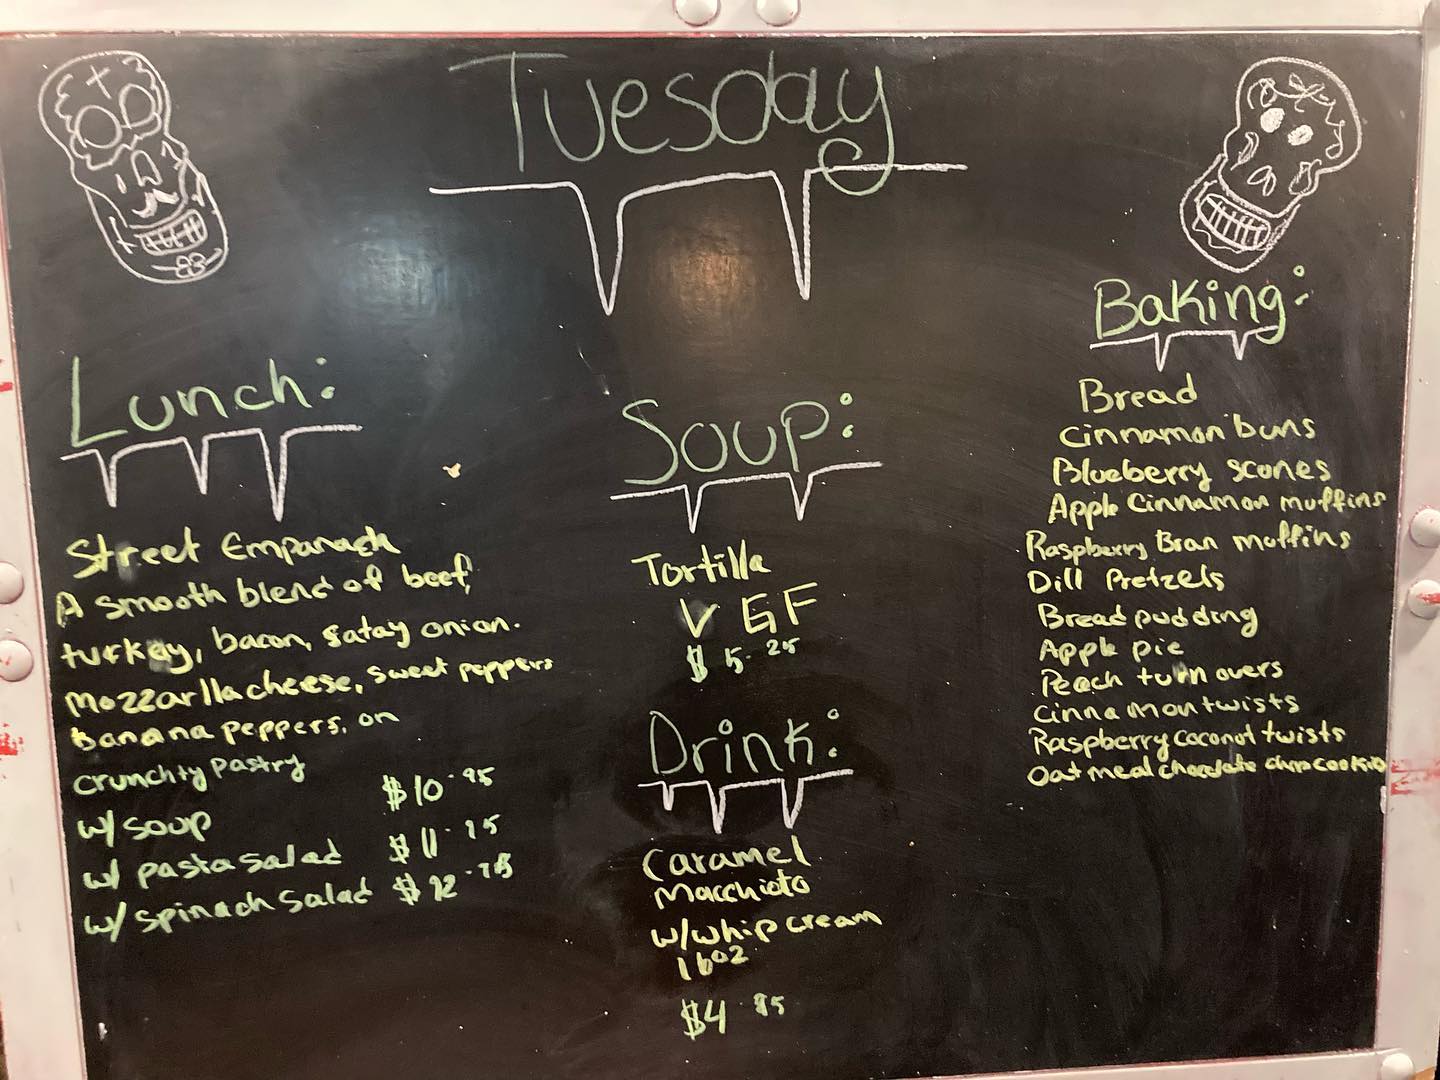 Tuesday
Lunch:
Street Empanada
A smooth blend of beef,
turkey, bacon, satay onion.
mozzarlla cheese, sweet peppers
banana peppers, on
crunchty pastry
w/ soup $10.95
w/ pasta salad $11.
w/ spinach salad $12.
Soup:
Tortilla
V GF
$5.25
Drink:
Caramel
Macchiato
w/whip cream
16oz
$4.
Baking:
Bread
cinnamon buns
Blueberry scones
Apple Cinnamon muffins
Raspberry Bran muffins
Dill Pretzels
Bread pudding
Apple pie
Peach turnovers
cinnamon twists
Raspberry coconut twists
Oatmeal chocolate chip cookies